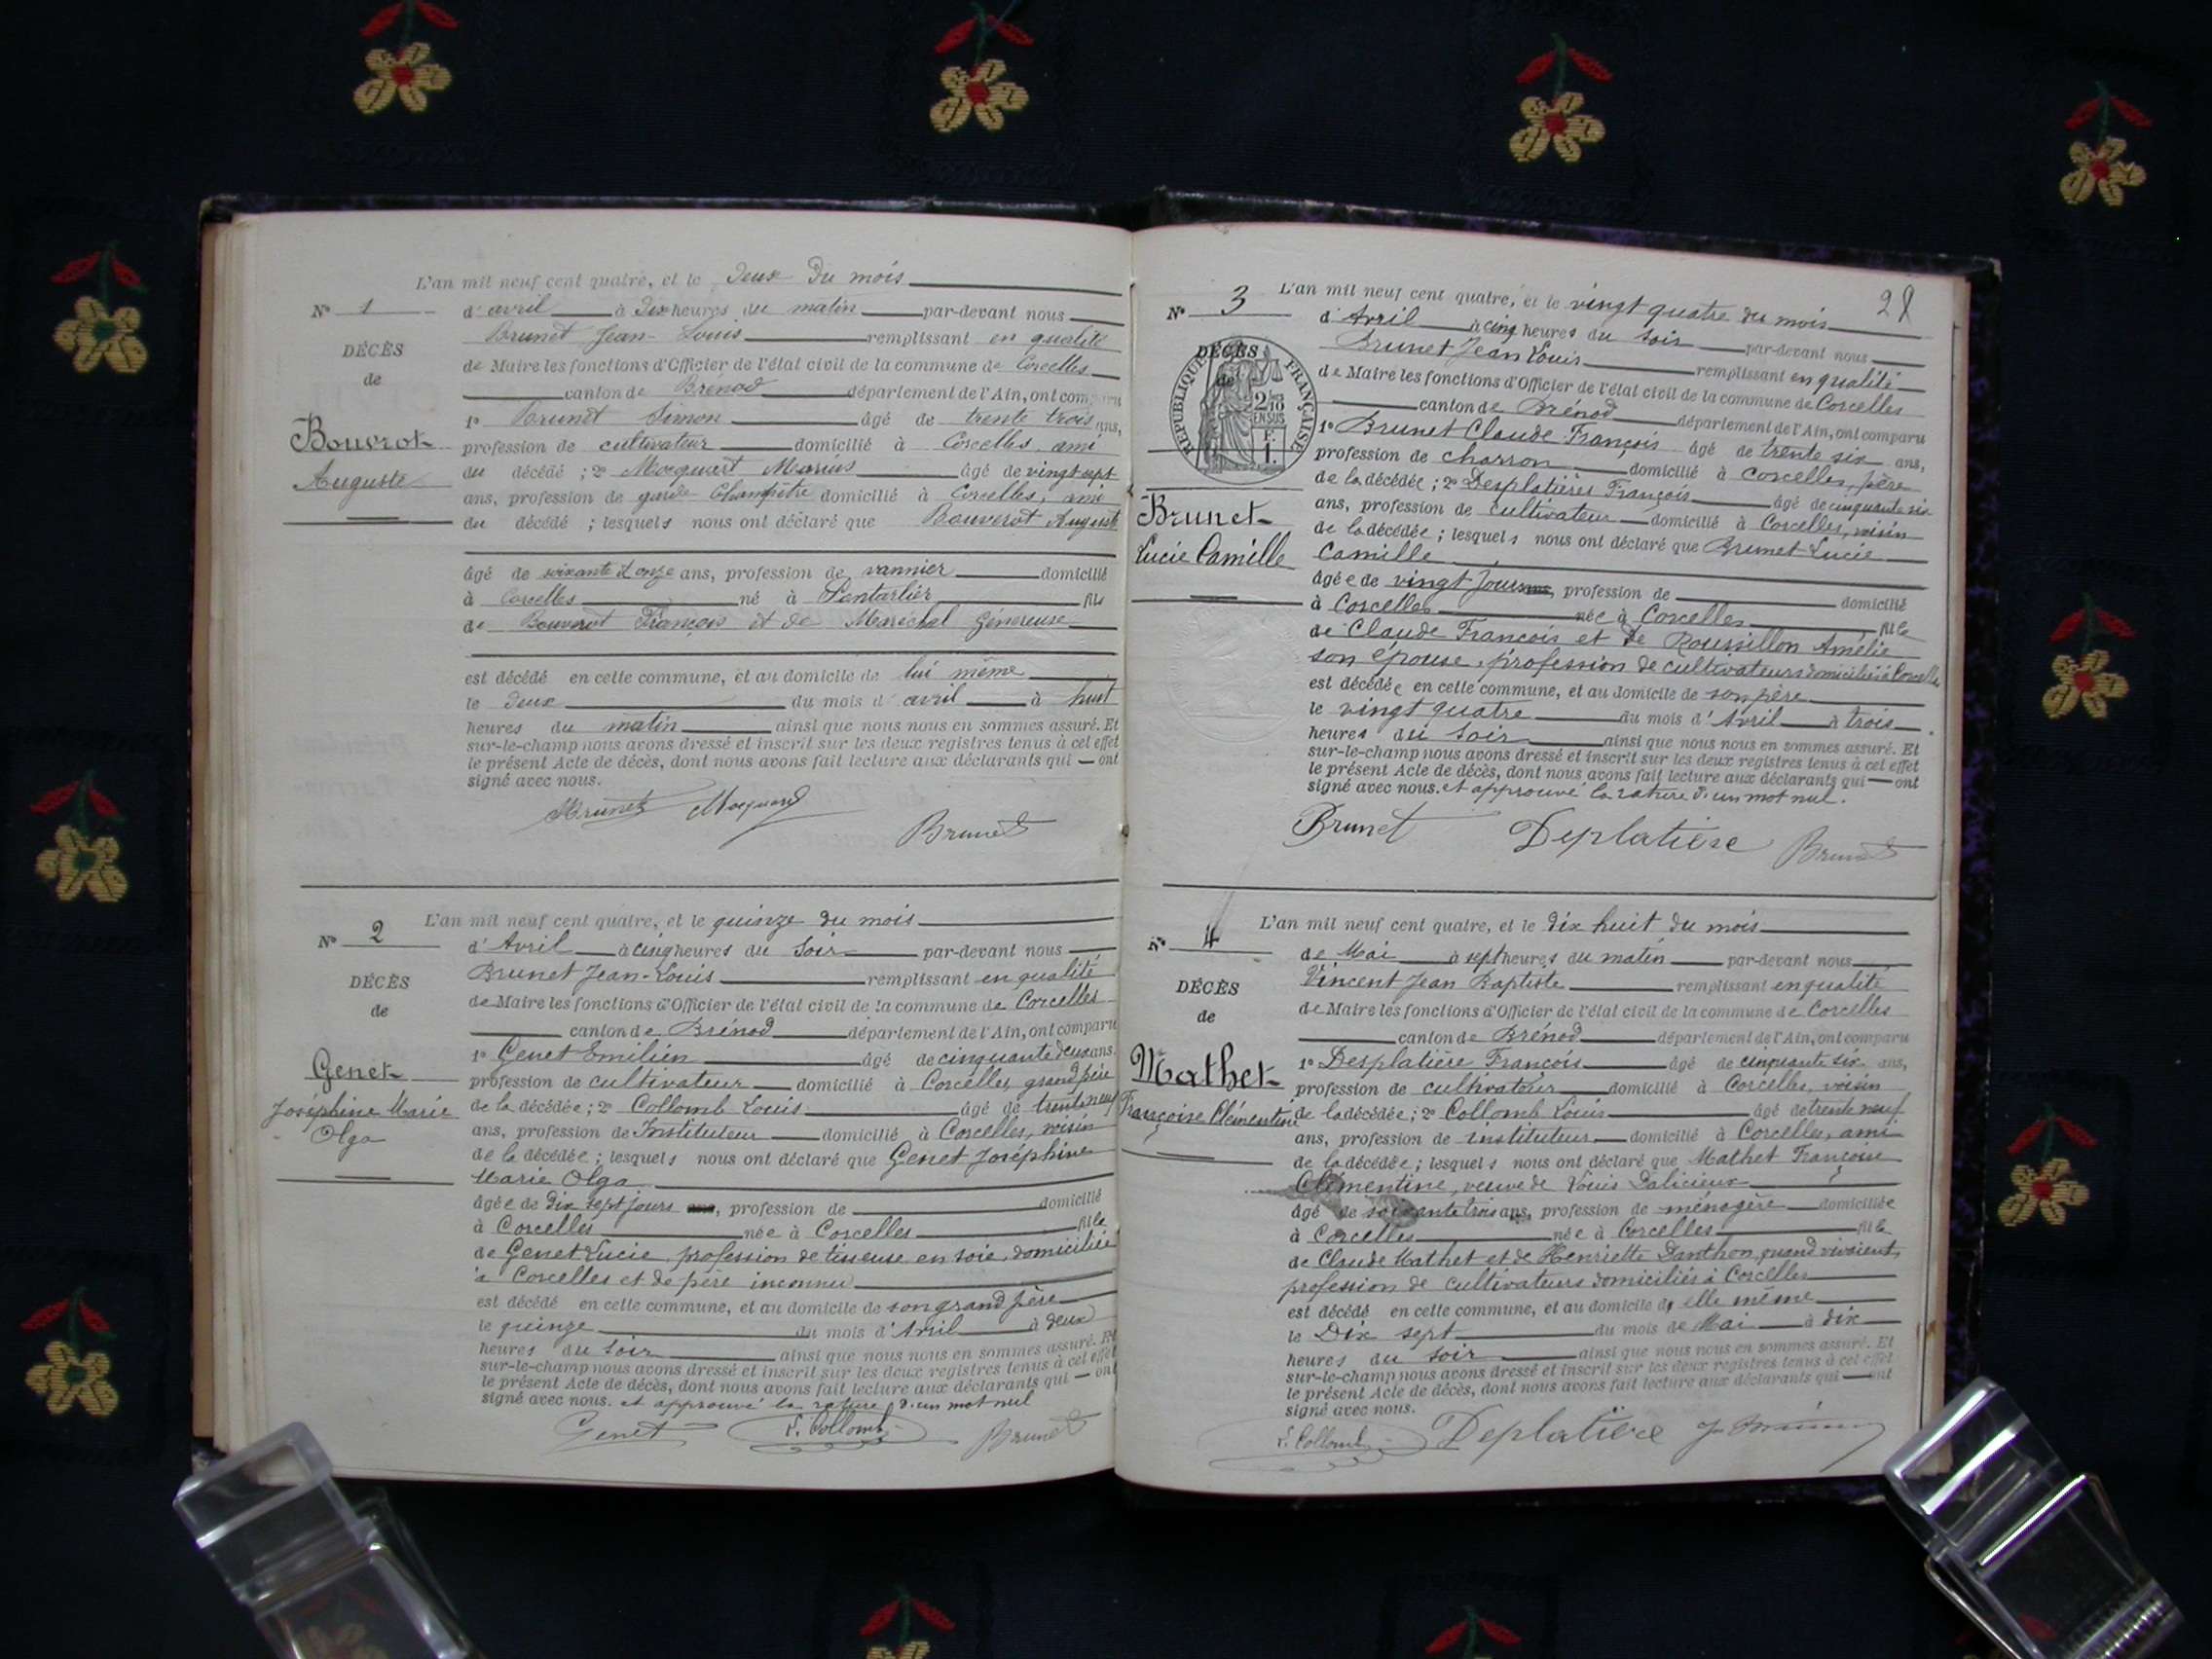 L'an mil neuf cent quatre, et le deux du mois
N° 1 d'avril à dix heures du matin par-devant nous
Brunet Jean-Louis remplissant en qualité
DÉCÈS
de Maire les fonctions d'Officier de l'état civil de la commune de Corcelles
de
canton de Brénod département de l'Ain, ont comparu
1° Brunet Simon âgé de trente trois ans,
Bouvrot
profession de cultivateur domicilié à Corcelles, ami
Auguste
du décédé ; 2° Marius âgé de vingt sept
ans, profession de garde champêtre domicilié à Corcelles, ami
du décédé ; lesquels nous ont déclaré que Bouverot Auguste
âgé de soixante et onze ans, profession de vannier domicilié
à Corcelles né à Pontarlier fils
de Bouverot François et de Maréchal Généreuse
est décédé en cette commune, et au domicile de lui même
le deux du mois d'avril à huit
heures du matin ainsi que nous nous en sommes assuré. Et
sur-le-champ nous avons dressé et inscrit sur les deux registres tenus à cet effet
le présent Acte de décès, dont nous avons fait lecture aux déclarants qui ont
signé avec nous.
Brunet
Brunet
L'an mil neuf cent quatre, et le quinze du mois
N° 2 d'Avril à cinq heures du soir par-devant nous
Brunet Jean-Louis remplissant en qualité
DÉCÈS
de Maire les fonctions d'Officier de l'état civil de la commune de Corcelles
de
canton de Brénod département de l'Ain, ont comparu
1° Genet Emilien âgé de cinquante deux ans
Genet
profession de cultivateur domicilié à Corcelles, grand père
Joséphine Marie
de la décédée ; 2° Collomb Louis âgé de trente neuf
Olga
ans, profession de Instituteur domicilié à Corcelles, voisin
de la décédée ; lesquels nous ont déclaré que Genet Joséphine
Marie Olga
âgée de dix sept jours ans, profession de domicilié
à Corcelles née à Corcelles fille
de Genet Lucie, profession de tisseuse en soie, domiciliée
à Corcelles et de père inconnu
est décédé en cette commune, et au domicile de son grand père
le quinze du mois d'Avril à deux
heures du soir ainsi que nous nous en sommes assuré. Et
sur-le-champ nous avons dressé et inscrit sur les deux registres tenus à cet effet
le présent Acte de décès, dont nous avons fait lecture aux déclarants qui ont
signé avec nous. et approuvé la rature d'un mot nul
Genet L. Collomb Brunet
28
L'an mil neuf cent quatre, et le vingt quatre du mois
N° 3 d'Avril à cinq heures du soir par-devant nous
Brunet Jean Louis remplissant en qualité
DÉCÈS
de
RÉPUBLIQUE FRANÇAISE
2/10 EN SUS
F. 1.
de Maire les fonctions d'Officier de l'état civil de la commune de Corcelles
canton de Brénod département de l'Ain, ont comparu
1° Brunet Claude François âgé de trente six ans,
profession de charron domicilié à Corcelles, père
de la décédée ; 2° Desplatières François âgé de cinquante six
Brunet
ans, profession de cultivateur domicilié à Corcelles, voisin
de la décédée ; lesquels nous ont déclaré que Brunet Lucie
Lucie Camille
Camille
âgée de vingt jours ans, profession de domicilié
à Corcelles née à Corcelles fille
de Claude François et de Roussillon Amélie
son épouse, profession de cultivateurs domiciliés à Corcelles
est décédée en cette commune, et au domicile de son père
le vingt quatre du mois d'Avril à trois
heures du soir ainsi que nous nous en sommes assuré. Et
sur-le-champ nous avons dressé et inscrit sur les deux registres tenus à cet effet
le présent Acte de décès, dont nous avons fait lecture aux déclarants qui ont
signé avec nous. et approuvé la rature d'un mot nul.
Brunet Deplatière Brunet
L'an mil neuf cent quatre, et le dix huit du mois
N° 4 de Mai à sept heures du matin par-devant nous
Vincent Jean Baptiste remplissant en qualité
DÉCÈS
de Maire les fonctions d'Officier de l'état civil de la commune de Corcelles
de
canton de Brénod département de l'Ain, ont comparu
1° Desplatière François âgé de cinquante six ans,
Mathet
profession de cultivateur domicilié à Corcelles, voisin
Françoise Clémentine
de la décédée ; 2° Collomb Louis âgé de trente neuf
ans, profession de instituteur domicilié à Corcelles, ami
de la décédée ; lesquels nous ont déclaré que Mathet Françoise
Clémentine, veuve de Louis Dalicieux
âgé de soixante trois ans, profession de ménagère domiciliée
à Corcelles née à Corcelles fille
de Claude Mathet et de Henriette Danthon, quand vivaient,
profession de cultivateurs domiciliés à Corcelles
est décédé en cette commune, et au domicile d'elle même
le Dix sept du mois de Mai à dix
heures du soir ainsi que nous nous en sommes assuré. Et
sur-le-champ nous avons dressé et inscrit sur les deux registres tenus à cet effet
le présent Acte de décès, dont nous avons fait lecture aux déclarants qui ont
signé avec nous.
L. Collomb Deplatière